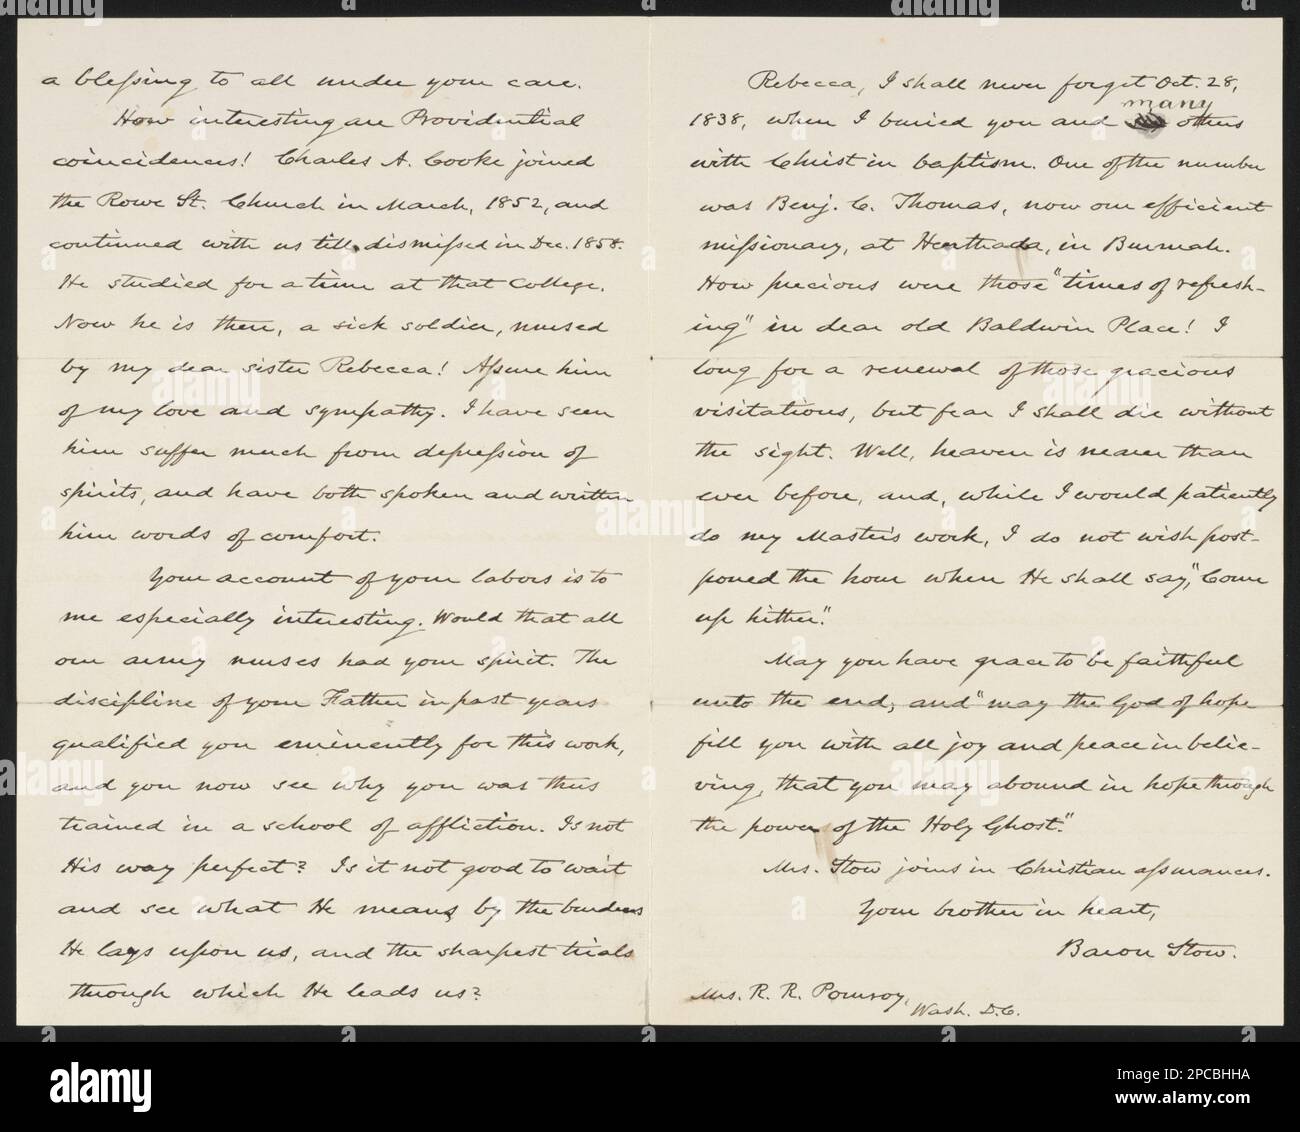 a blessing to all under your care.
How interesting are Providential
coincidences! Charles A. Cooke joined
the Rowe St. Church in March, 1852, and
continued with us till dismissed in Dec. 1858.
He studied for a time at that College.
Now he is there, a sick soldier, nursed
by my dear sister Rebecca! Assure him
of my love and sympathy. I have seen
him suffer much from depression of
spirits, and have both spoken and written
him words of comfort.
Your account of your labors is to
me especially interesting. Would that all
our army nurses had your spirit. The
discipline of your Father in past years
qualified you eminently for this work,
and you now see why you was thus
trained in a school of affliction. Is not
His way perfect? Is it not good to wait
and see what He means by the burdens
He lays upon us, and the sharpest trials
through which He leads us?
Rebecca, I shall never forget Oct. 28,
many
1838, when I buried you and others
with Christ in baptism. One of the number
was Benj. C. Thomas, now our efficient
missionary, at Henthada, in Burmah.
How precious were those "times of refresh-
ing" in dear old Baldwin Place! I
long for a renewal of those gracious
visitations, but fear I shall die without
the sight. Well, heaven is nearer than
ever before, and, while I would patiently
do my Master's work, I do not wish post-
poned the hour when He shall say, "Come
up hither."
May you have grace to be faithful
unto the end, and "may the God of hope
fill you with all joy and peace in belie-
ving, that you may abound in hope through
the power of the Holy Ghost."
Mrs. Stow joins in Christian assurances.
Your brother in heart,
Baron Stow.
Mrs. R. R. Pomroy,
Wash. D.C.
alamy
Image ID: 2PCBHHA
www.alamy.com